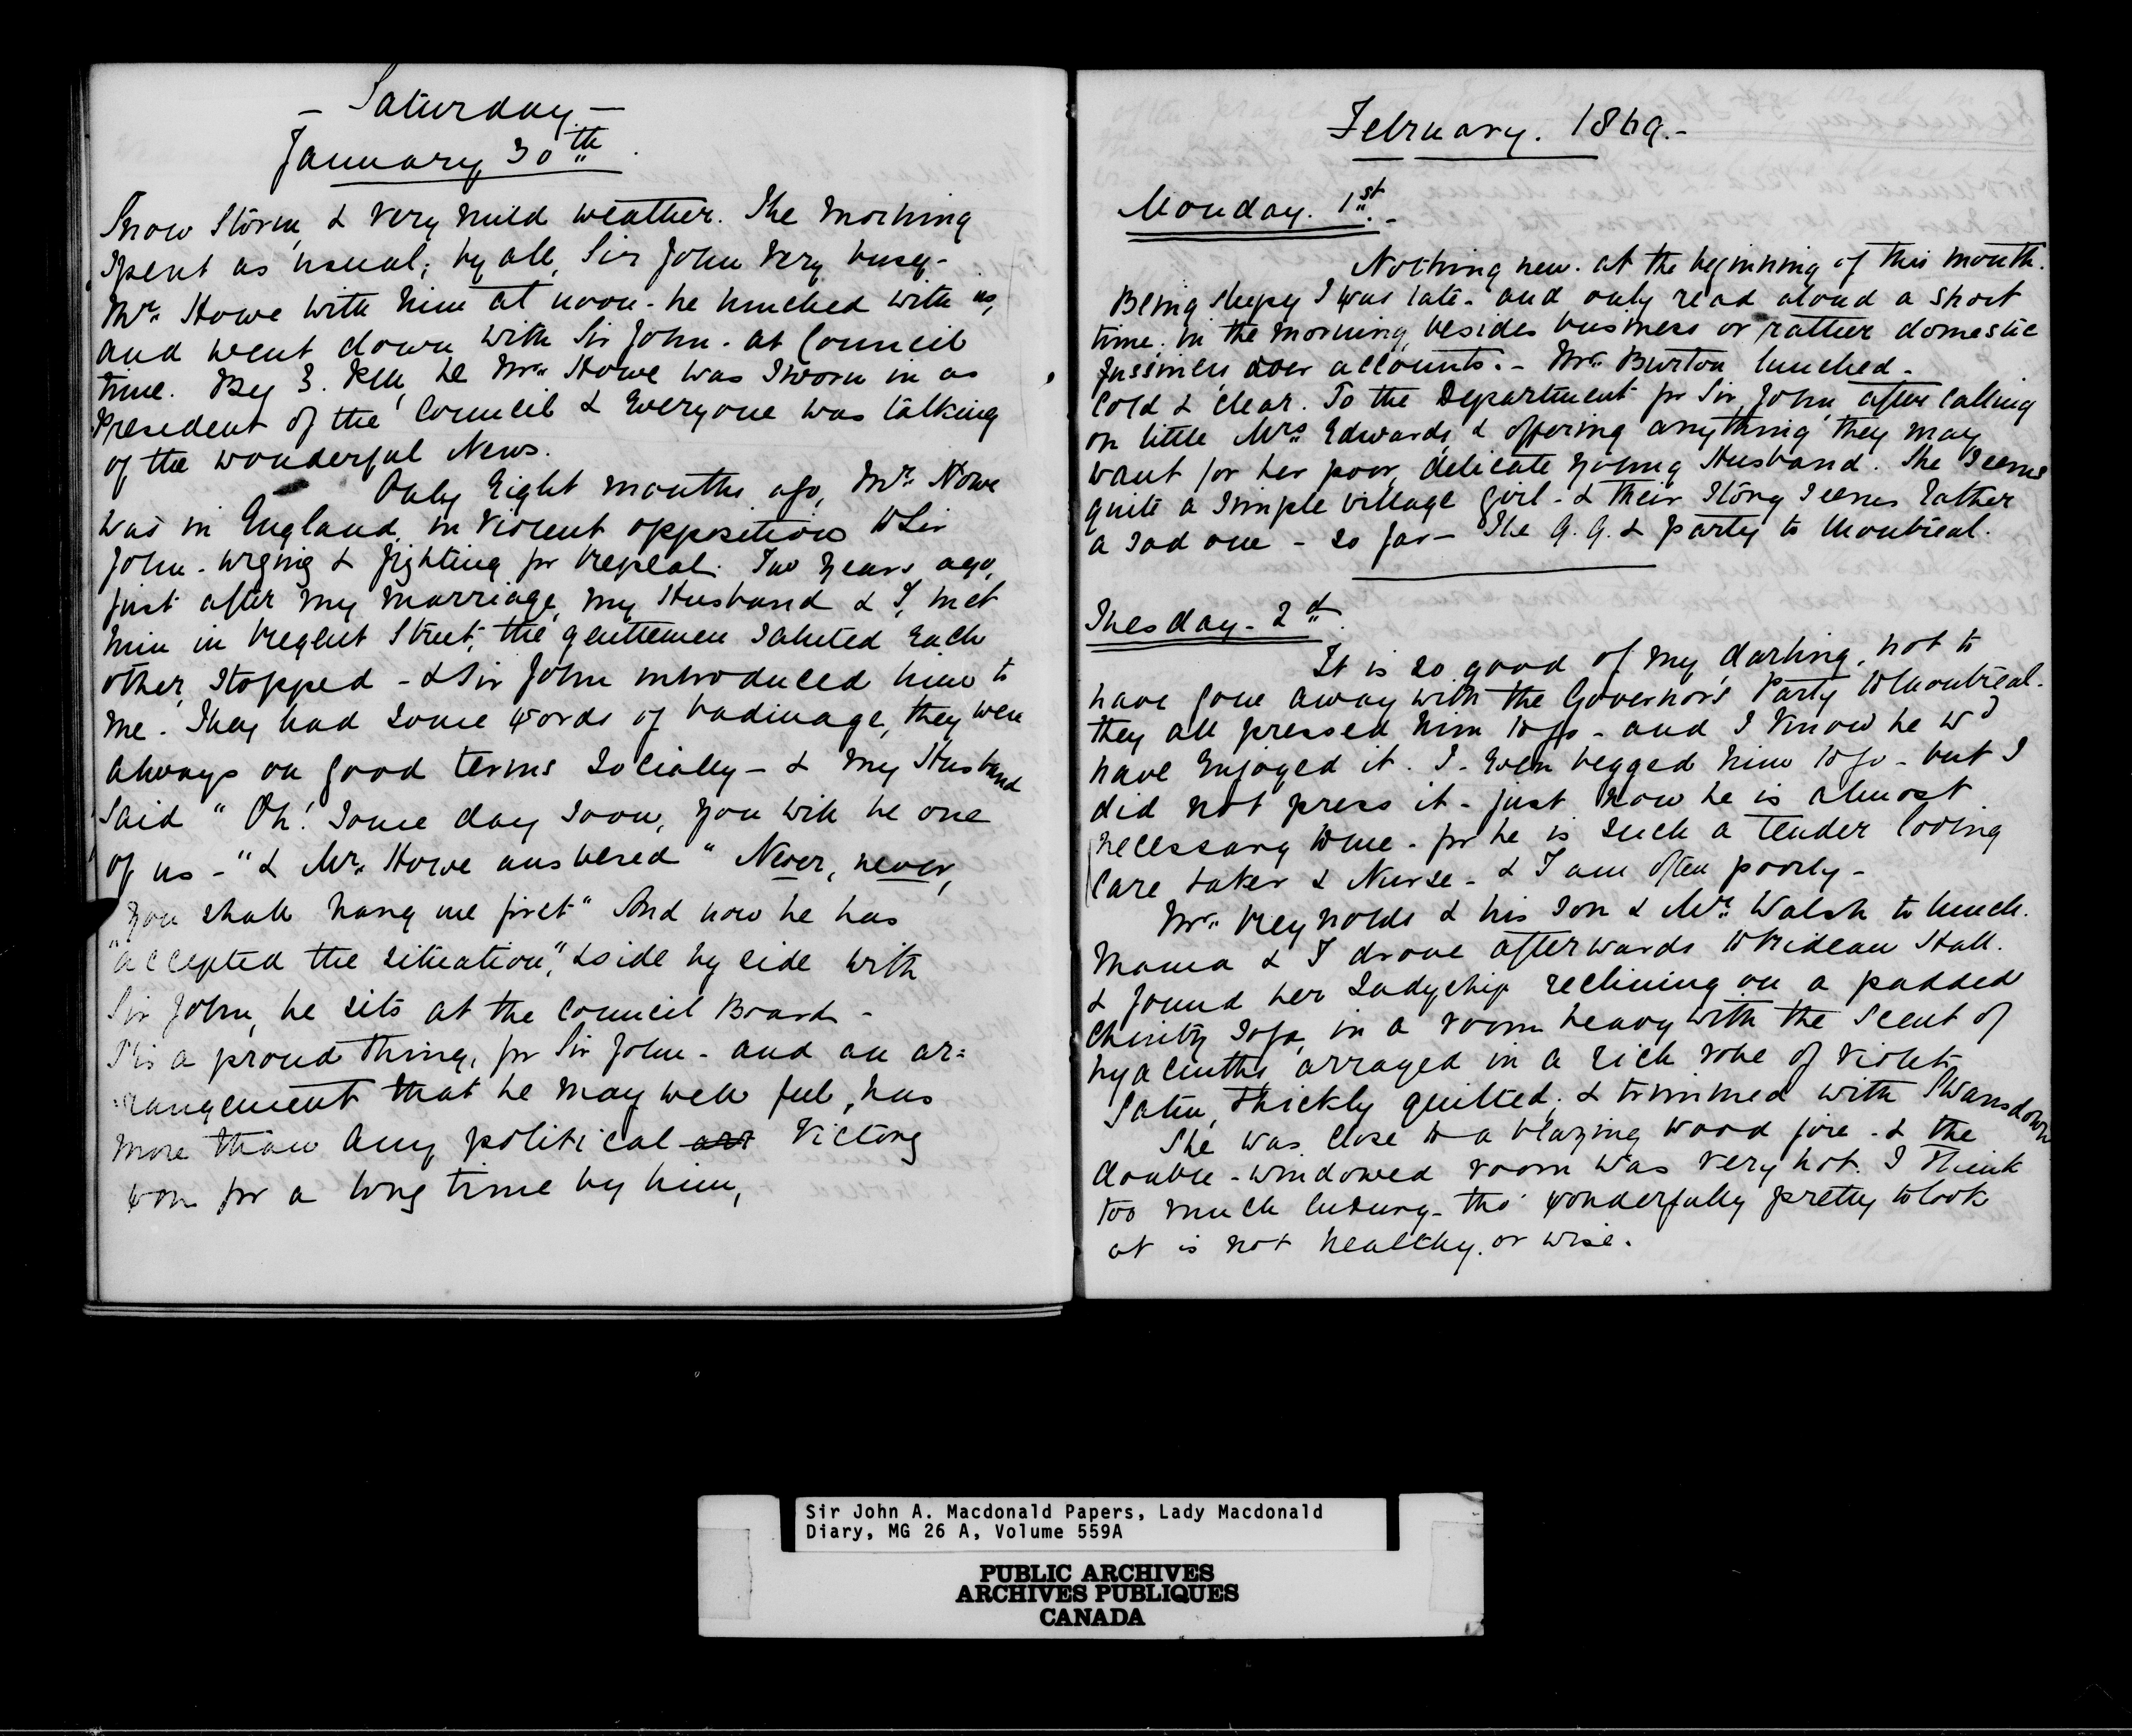 - Saturday -
January 30th.
Snow Storm, & very mild weather. The morning
spent as usual, by all, Sir John very busy -
Mr. Howe with him at noon - he lunched with us,
and went down with Sir John - at Council
time. By 3. P.M, he Mr. Howe was sworn in as
President of the Council & Everyone was talking
of the wonderful News.
Only Eight months ago, Mr. Howe
was in England, in violent opposition to Sir
John - urging & fighting for repeal. Two years ago,
just after my marriage, my Husband & I, met
him in Regent Street, the gentlemen saluted Each
other, stopped - & Sir John introduced him to
me. They had some words of badinage, they were
always on good terms socially - & my Husband
said "Oh! Some day soon, you will be one
of us -" & Mr. Howe answered "Never, never,
"you shall hang me first" And now he has
"accepted the situation", & side by side with
Sir John, he sits at the Council Board -
'Tis a proud thing, for Sir John - and an ar=
=rangement that he may well feel, has
more than any political arr victory
won for a long time by him,
February. 1869.-
Monday. 1st.-
Nothing new. at the beginning of this month.
Being sleepy I was late - and only read aloud a short
time. in the morning, besides business or rather domestic
fussiness over accounts. - Mr. Burton lunched -
Cold & clear. To the Department for Sir John after calling
on little Mrs. Edwards & offering anything they may
want for her poor, delicate young Husband. She seems
quite a simple village girl - & their story seems rather
a sad one - so far - The G.G. & party to Montreal.
Tuesday - 2d.
It is so good of my darling, not to
have gone away with the Governor's Party to Montreal.
they all pressed him to go - and I know he wd
have Enjoyed it. I - Even begged him to go - but I
did not press it - just now he is almost
necessary to me - for he is such a tender loving
Care taker & Nurse - & I am often poorly -
Mr. Reynolds & his son & Mr. Walsh to lunch.
Mama & I drove afterwards to Rideau Hall.
& found her Ladyship reclining on a padded
Chintz sofa, in a room heavy with the scent of
hyacinths arrayed in a rich robe of violet
Satin, thickly quilted, & trimmed with Swansdown
She was close to a blazing wood fire - & the
double-windowed room was very hot. I think
too much luxury - tho' wonderfully pretty to look
at is not healthy. or wise.
Sir John A. Macdonald Papers, Lady Macdonald
Diary, MG 26 A, Volume 559A
PUBLIC ARCHIVES
ARCHIVES PUBLIQUES
CANADA